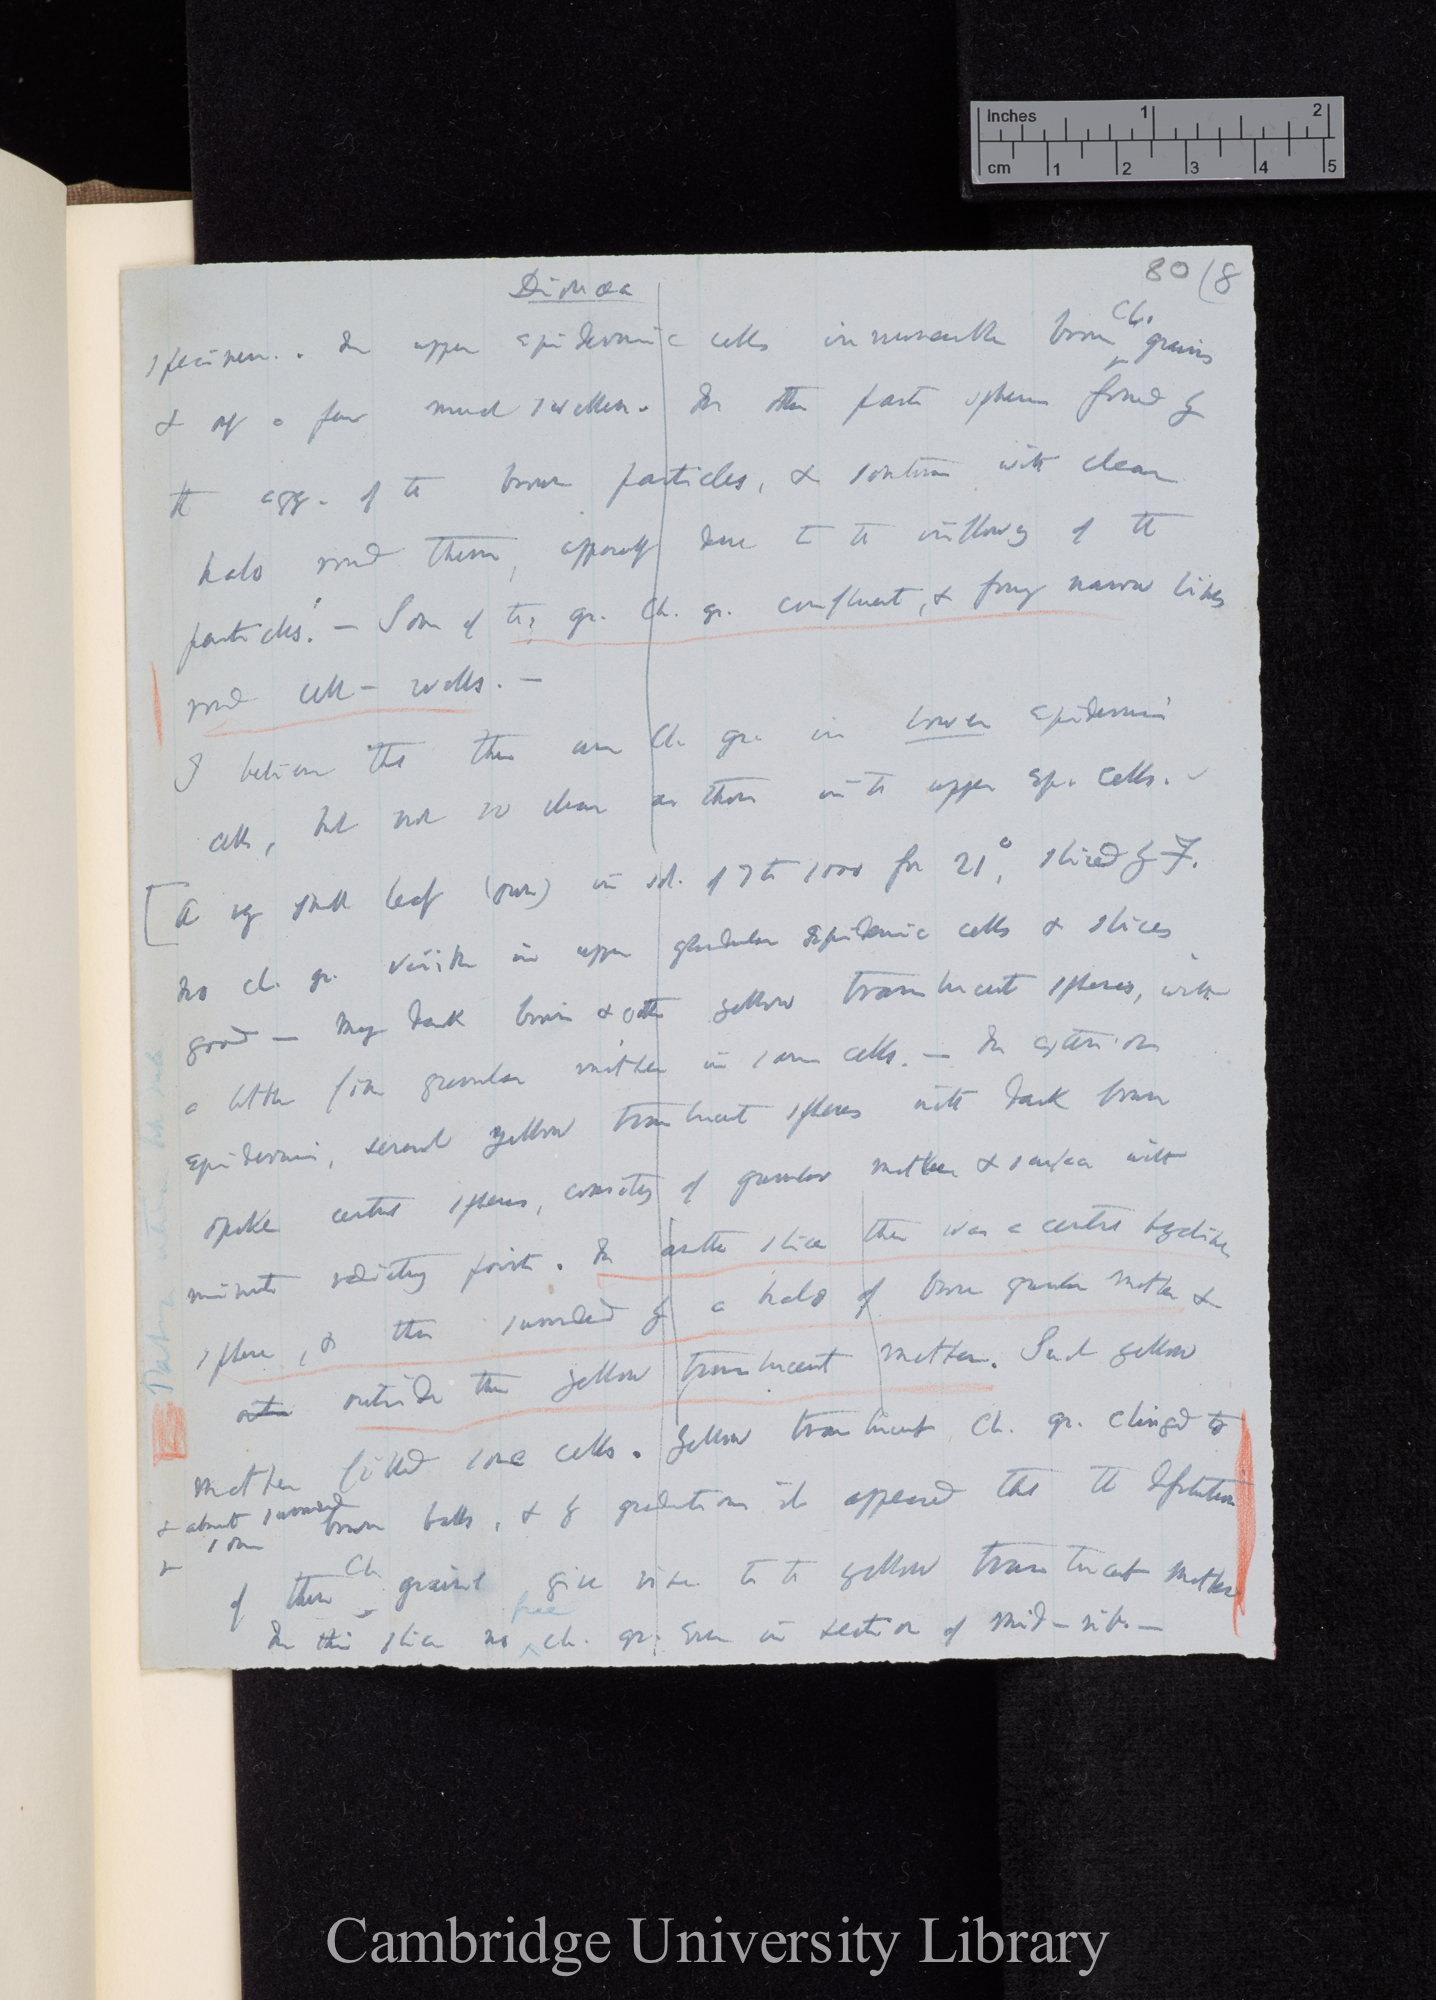 Inches 1 2
cm 1 2 3 4 5
80 (8
Dionæa
specimen. . In upper epidermic cells innumerable brown Ch. grains
& of a few much swollen. In other parts spheres formed by
the agg. of the brown particles, & sometimes with clear
halo round them, apparently due to the inflowing of the
particles. — Some of the gr. Ch. gr. confluent, & forming narrow lines
round cell-walls. —
I believe that there are Ch. gr. in lower epidermic
cells, but not so clear as those in the upper ep. cells.
[A very small leaf in sol. of 7 to 1000 for 21°, sliced by F.
No ch. gr. visible in upper glandular epidermic cells & slices
good — Many dark brown & other yellow translucent spheres, with
a little fine granular matter in same cells. — In exterior
epidermis, several yellow translucent spheres with dark brown
opake central spheres, consisting of granular matter & surface with
minute radiating points. In another slice there was a central hyaline
sphere, & this surrounded by a halo of brown granular matter &
outside this yellow translucent matter. Such yellow
matter filled some cells. Yellow translucent Ch. gr. clinged to
& almost surround
& some brown balls, & by gradations it appeared that the
of these Ch grains give rise to the yellow translucent matter
In this slice no free ch. gr. even in section of mid-rib. —
Cambridge University Library